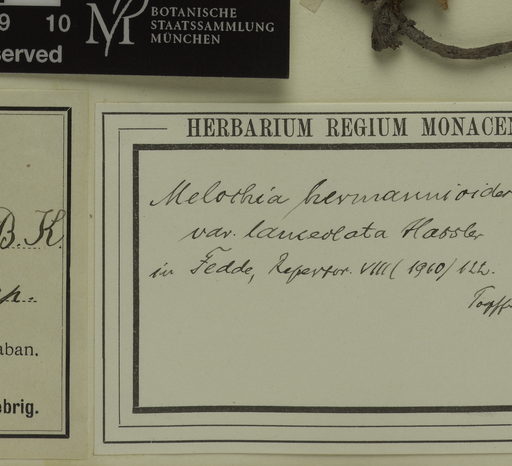 9 10
served
BOTANISCHE
STAATSSAMMLUNG
MÜNCHEN
B. K.
aban.
ebrig.
HERBARIUM REGIUM MONACEN
Melochia hermannioides
var. lanceolata Hassler
in Fedde, Repertor. VIII (1910) 122.